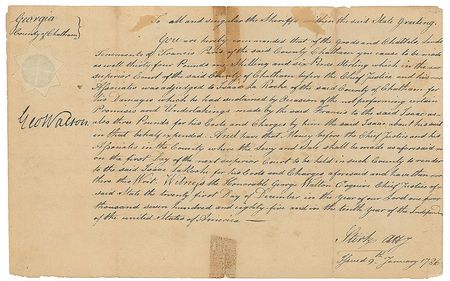 Georgia
County of Chatham
To all and singular the Sheriffs within the said State Greeting.
You are hereby commanded that of the Goods and Chattels, Lands
Tenements of Francis of the said County Chatham you cause to be made
as well thirty four Pounds Shilling and six Pence Sterling which in the
superior Court of the said County of Chatham before the Chief Justice and his
Associates was adjudged to Isaac La Roche of the said County of Chatham for
his Damages which he had sustained by Reason of the not performing certain
Promises and Undertakings made by the said Francis to the said Isaac as
also three Pounds for his Costs and Charges by him the said Isaac about his suit
in that behalf expended. And have that Money before the Chief Justice and his
Associates in the County where the Levy and Sale shall be made as aforesaid
on the first Day of the next superior Court to be held in such County to render
to the said Isaac LaRoche for his Costs and Charges aforesaid and have then and
there this Writ. Witness the Honorable George Walton Esquire Chief Justice of
said State the twenty first Day of December in the Year of our Lord one
thousand seven hundred and eighty five and in the tenth Year of the Independence
of the united States of America
Geo Walton
Stirk Atty
Issued 9th January 1786